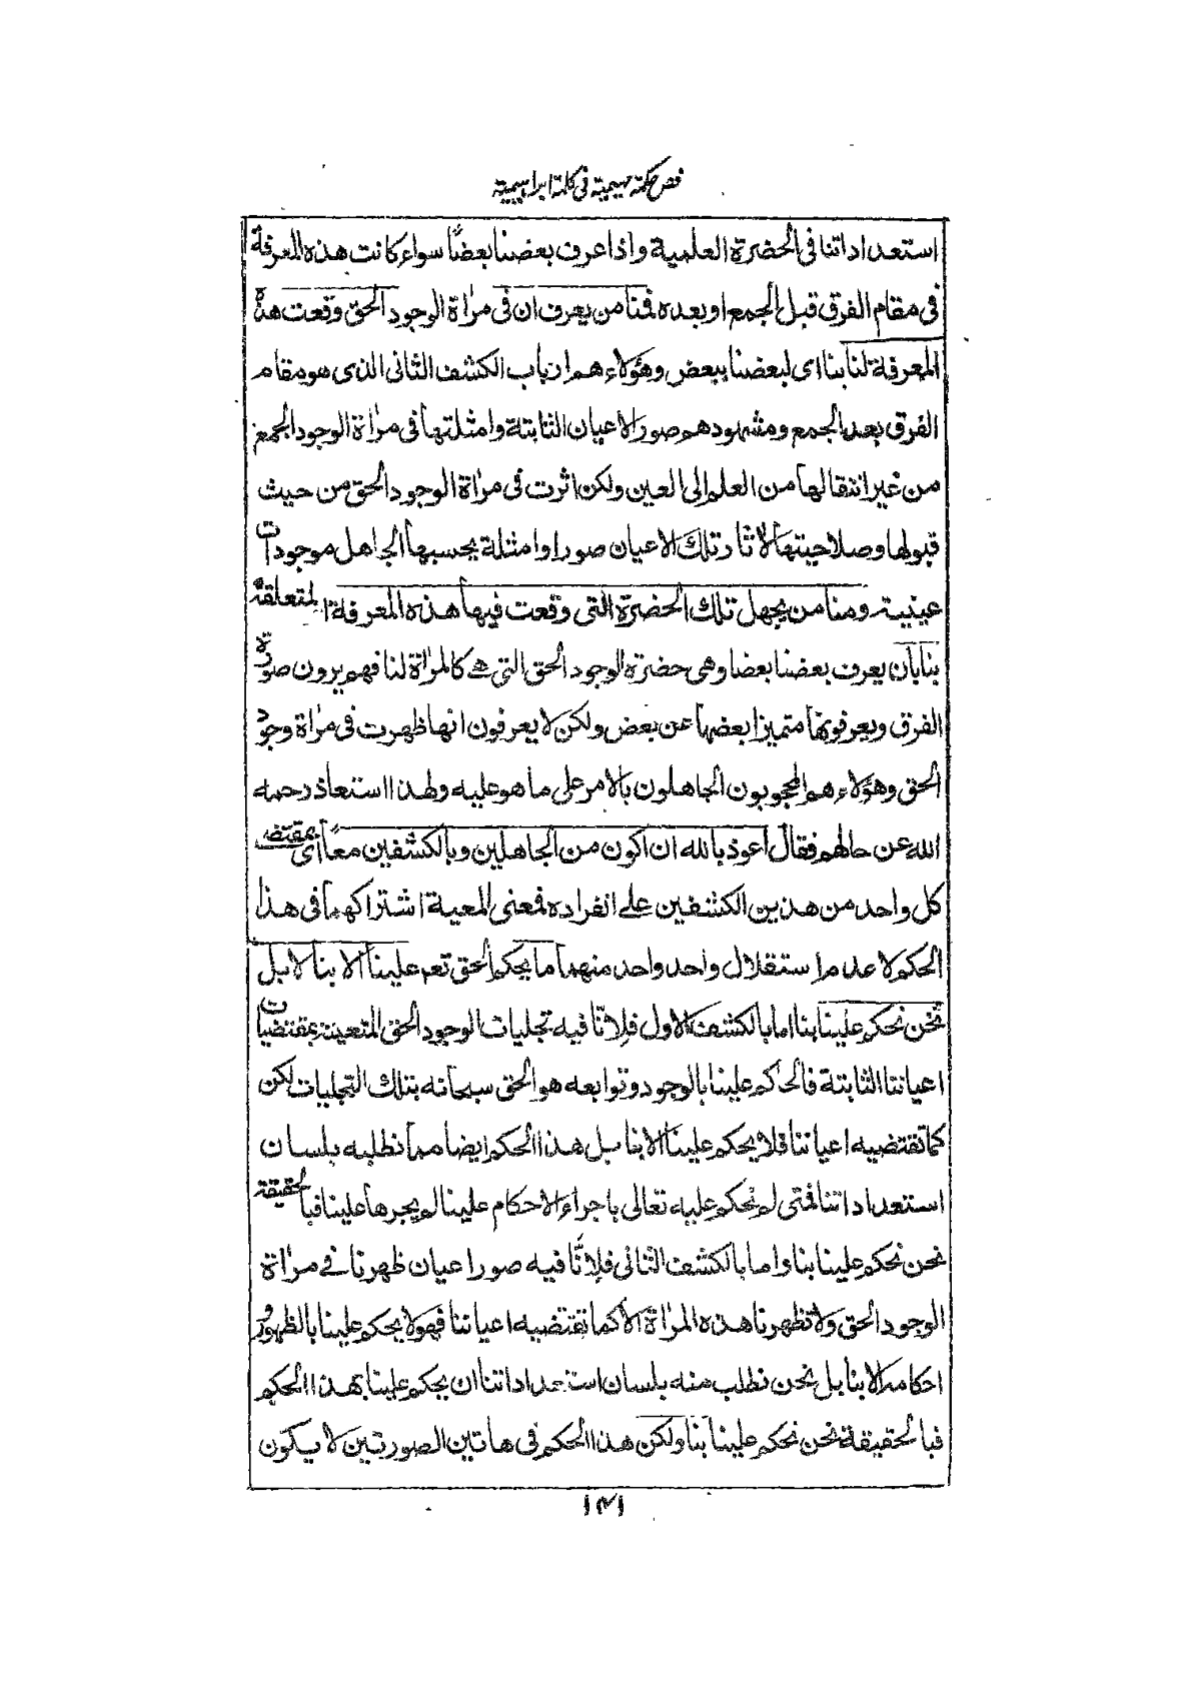 فص حكمة مهيمية في كلمة ابراهيمية
استعداداتنا فى الحضرة العلمية واذا عرف بعضنا بعضًا سواء كانت هذه المعرفة
فى مقام الفرق قبل الجمع او بعده فمنا من يعرف ان فى مراٰة الوجود الحق وقعت هذه
المعرفة لنا بنا اى لبعضنا ببعض وهٰؤلاء هم ارباب الكشف الثانى الذى هو مقام
الفرق بعد الجمع ومشهودهم صور الاعيان الثابتة وامثلتها فى مراٰة الوجود الجمع
من غير انتقالها من العلم الى العين ولكن اثرت فى مراٰة الوجود الحق من حيث
قبولها وصلاحيتها لاٰثار تلك الاعيان صورا وامثلة يحسبها الجاهل موجودات
عينية ومنا من يجهل تلك الحضرة التى وقعت فيها هذه المعرفة المتعلقة
بنا بان يعرف بعضنا بعضا وهى حضرة الوجود الحق التى هے كالمراٰة لنا فهم يرون صورة
الفرق ويعرفونها متميزا بعضها عن بعض ولكن لا يعرفون انها ظهرت فى مراٰة وجود
الحق وهٰؤلاء هم المحجوبون الجاهلون بالامر على ما هو عليه ولهذا استعاذ رحمه
الله عن حالهم فقال اعوذ بالله ان اكون من الجاهلين وبالكشفين معًا اى بمقتضى
كل واحد من هذين الكشفين علے انفراده فمعنى المعية اشتراكهما فى هذا
الحكم لا عدم استقلال واحد واحد منهما ما يحكم الحق تعم علينا الا بنا لا بل
نحن نحكم علينا بنا اما بالكشف الاول فلانّا فيه تجليات الوجود الحق المتعينة بمقتضيات
اعياننا الثابتة فالحاكم علينا بالوجود وتوابعه هو الحق سبحانه بتلك التجليات لكن
كما تقتضيه اعياننا فلا يحكم علينا الا بنا بل هذا الحكم ايضا مما نطلبه بلسان
استعداداتنا فمتى لم نحكم عليه تعالى باجراء الاحكام علينا لم يجرها علينا فبالحقيقة
نحن نحكم علينا بنا واما بالكشف الثانى فلانّا فيه صور اعيان ظهرنا فے مراٰة
الوجود الحق ولا تظهرنا هذه المراٰة الا كما تقتضيه اعياننا فهو لا يحكم علينا بالظهور و
احكامه الا بنا بل نحن نطلب منه بلسان استعداداتنا ان يحكم علينا بهذا الحكم
فبالحقيقة نحن نحكم علينا بنا ولكن هذا الحكم فى هاتين الصورتين لا يكون
۱۴۱